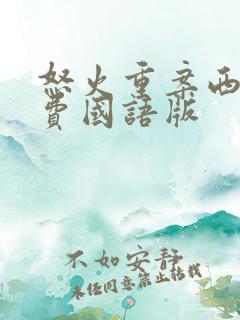 怒火重案西
費國語版
不如安静
未经同意禁止转载